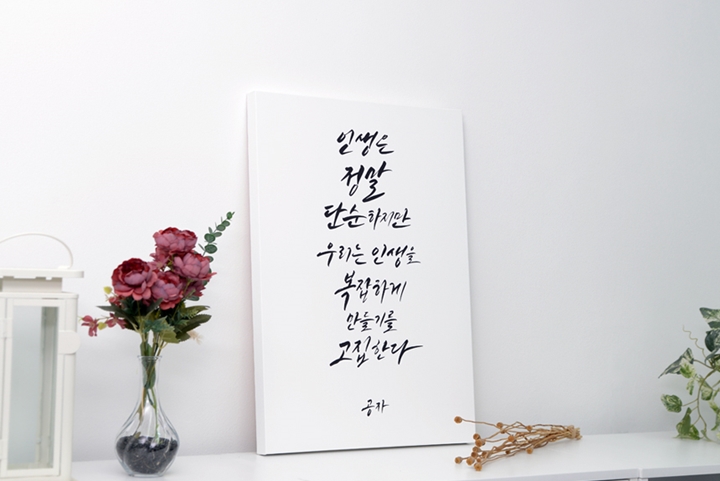 인생은
정말
단순하지만
우리는 인생을
복잡하게
만들기를
고집한다
공자